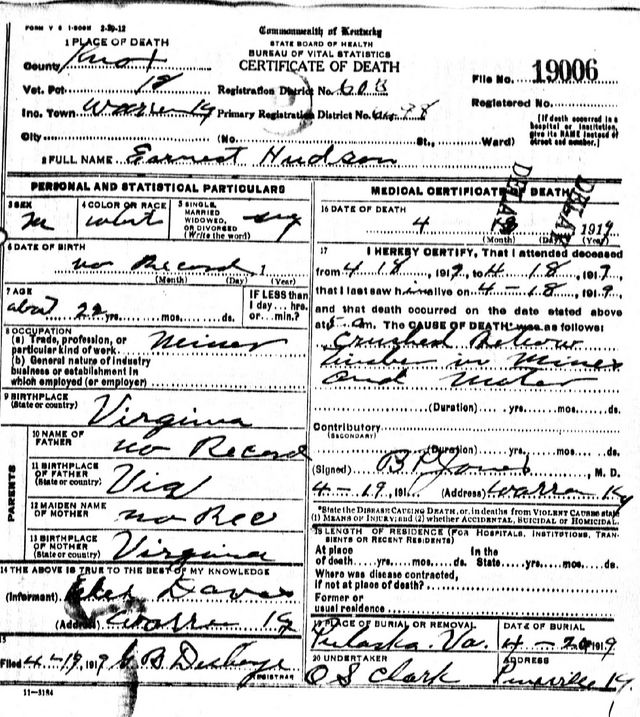 FORM V S 1-500M 2-20-12
Commonwealth of Kentucky
STATE BOARD OF HEALTH
BUREAU OF VITAL STATISTICS
CERTIFICATE OF DEATH
1 PLACE OF DEATH
County Knox
Vot. Pct 18 Registration District No. 608 File No. 19006
Inc. Town Warren Ky Primary Registration District No. Registered No.
City (No. St., Ward) [If death occurred in a hospital or institution, give its NAME instead of street and number.]
2 FULL NAME Earnest Hudson
PERSONAL AND STATISTICAL PARTICULARS
3 SEX M
4 COLOR OR RACE
5 SINGLE, MARRIED WIDOWED, OR DIVORCED (Write the word) Sing
6 DATE OF BIRTH
no Record 1
(Month) (Day) (Year)
7 AGE
about 22 yrs. mos. ds.
IF LESS than 1 day... hrs. or... min.?
8 OCCUPATION
(a) Trade, profession, or particular kind of work Miner
(b) General nature of industry business or establishment in which employed (or employer)
9 BIRTHPLACE
(State or country) Virginia
PARENTS
10 NAME OF FATHER no Record
11 BIRTHPLACE OF FATHER (State or country) Via
12 MAIDEN NAME OF MOTHER no Rec
13 BIRTHPLACE OF MOTHER (State or country) Virginia
14 THE ABOVE IS TRUE TO THE BEST OF MY KNOWLEDGE
(Informant) Davis
(Address) Warren Ky
15
Filed 4-19 1919
REGISTRAR
11-3184
MEDICAL CERTIFICATE OF DEATH
DELAY DELAY
16 DATE OF DEATH
4 18 1919
(Month) (Day) (Year)
17 I HEREBY CERTIFY, That I attended deceased
from 4 18, 1919 to 4-18, 1919
that I last saw him alive on 4-18, 1919
and that death occurred on the date stated above
at m. The CAUSE OF DEATH was as follows:
Crushed Between
timber in Mines
and Motor
(Duration) yrs. mos. ds.
Contributory
(SECONDARY)
(Duration) yrs. mos. ds.
(Signed) B P Jones, M. D.
4-19, 191 (Address) Warren Ky
*State the DISEASE CAUSING DEATH, or, in deaths from VIOLENT CAUSES state (1) MEANS OF INJURY; and (2) whether ACCIDENTAL, SUICIDAL or HOMICIDAL.
18 LENGTH OF RESIDENCE (FOR HOSPITALS, INSTITUTIONS, TRANSIENTS OR RECENT RESIDENTS)
At place of death yrs. mos. ds. In the State yrs. mos. ds.
Where was disease contracted, if not at place of death?
Former or usual residence
19 PLACE OF BURIAL OR REMOVAL
Pulaska. Va.
DATE OF BURIAL
4-20 1919
20 UNDERTAKER
O S Clark
ADDRESS
Pineville Ky.